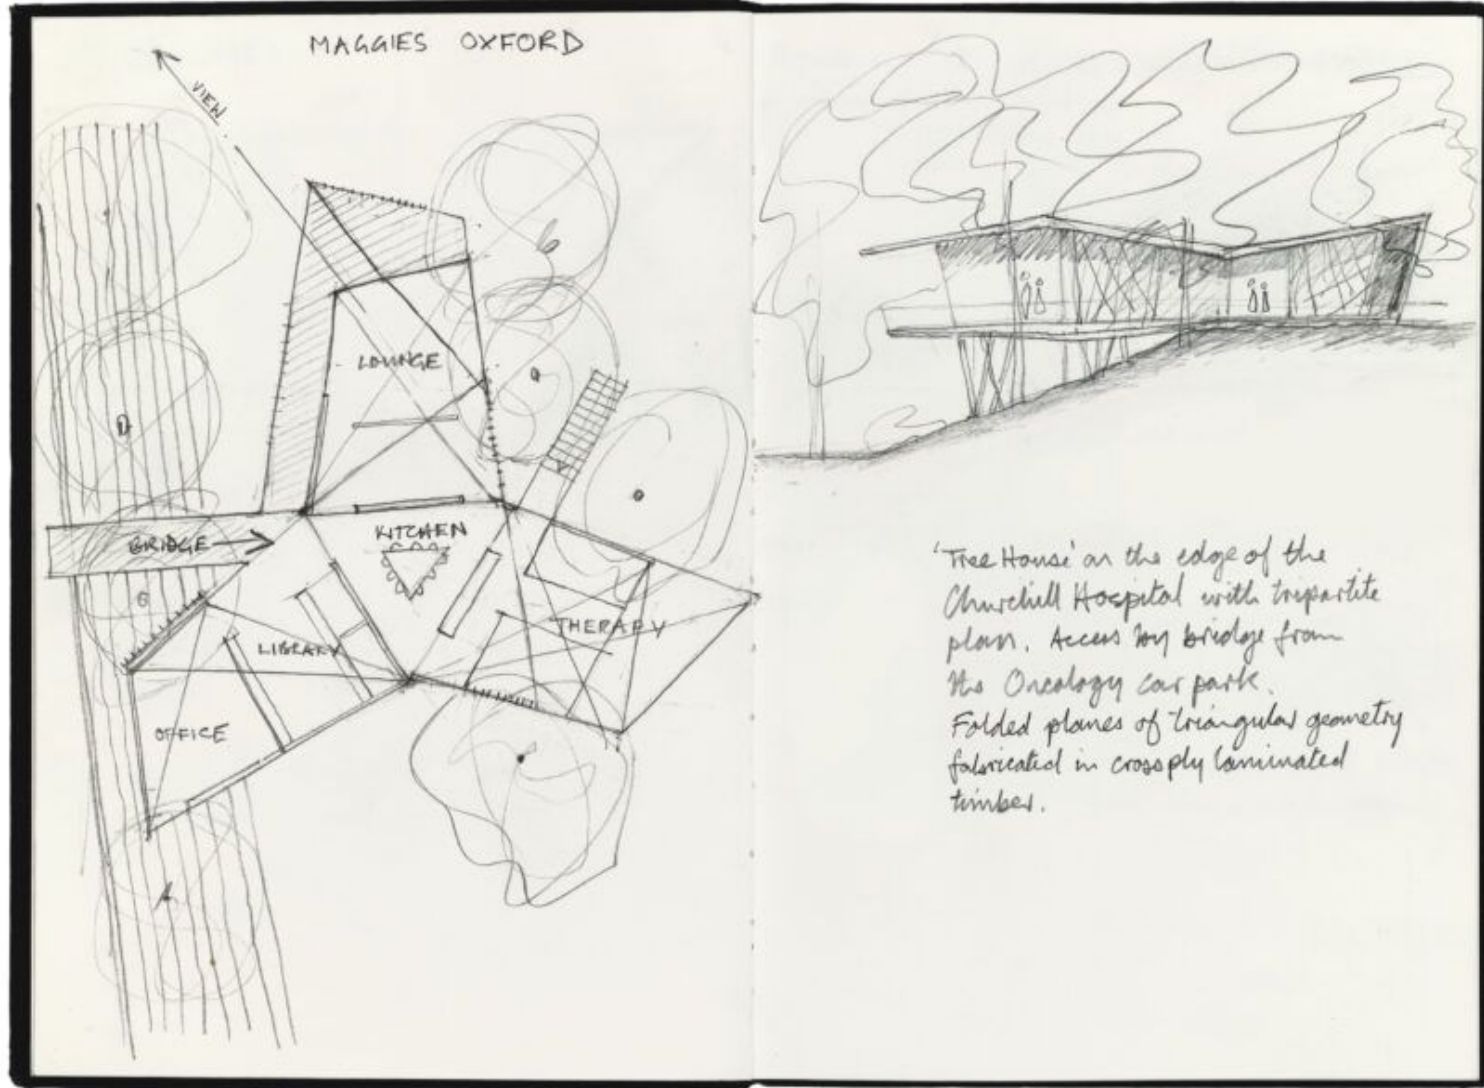 MAGGIES OXFORD
VIEW
LOUNGE
BRIDGE
KITCHEN
THERAPY
LIBRARY
OFFICE
'Tree House' on the edge of the
Churchill Hospital with tripartite
plan. Access by bridge from
the Oncology car park.
Folded planes of triangular geometry
fabricated in crossply laminated
timber.